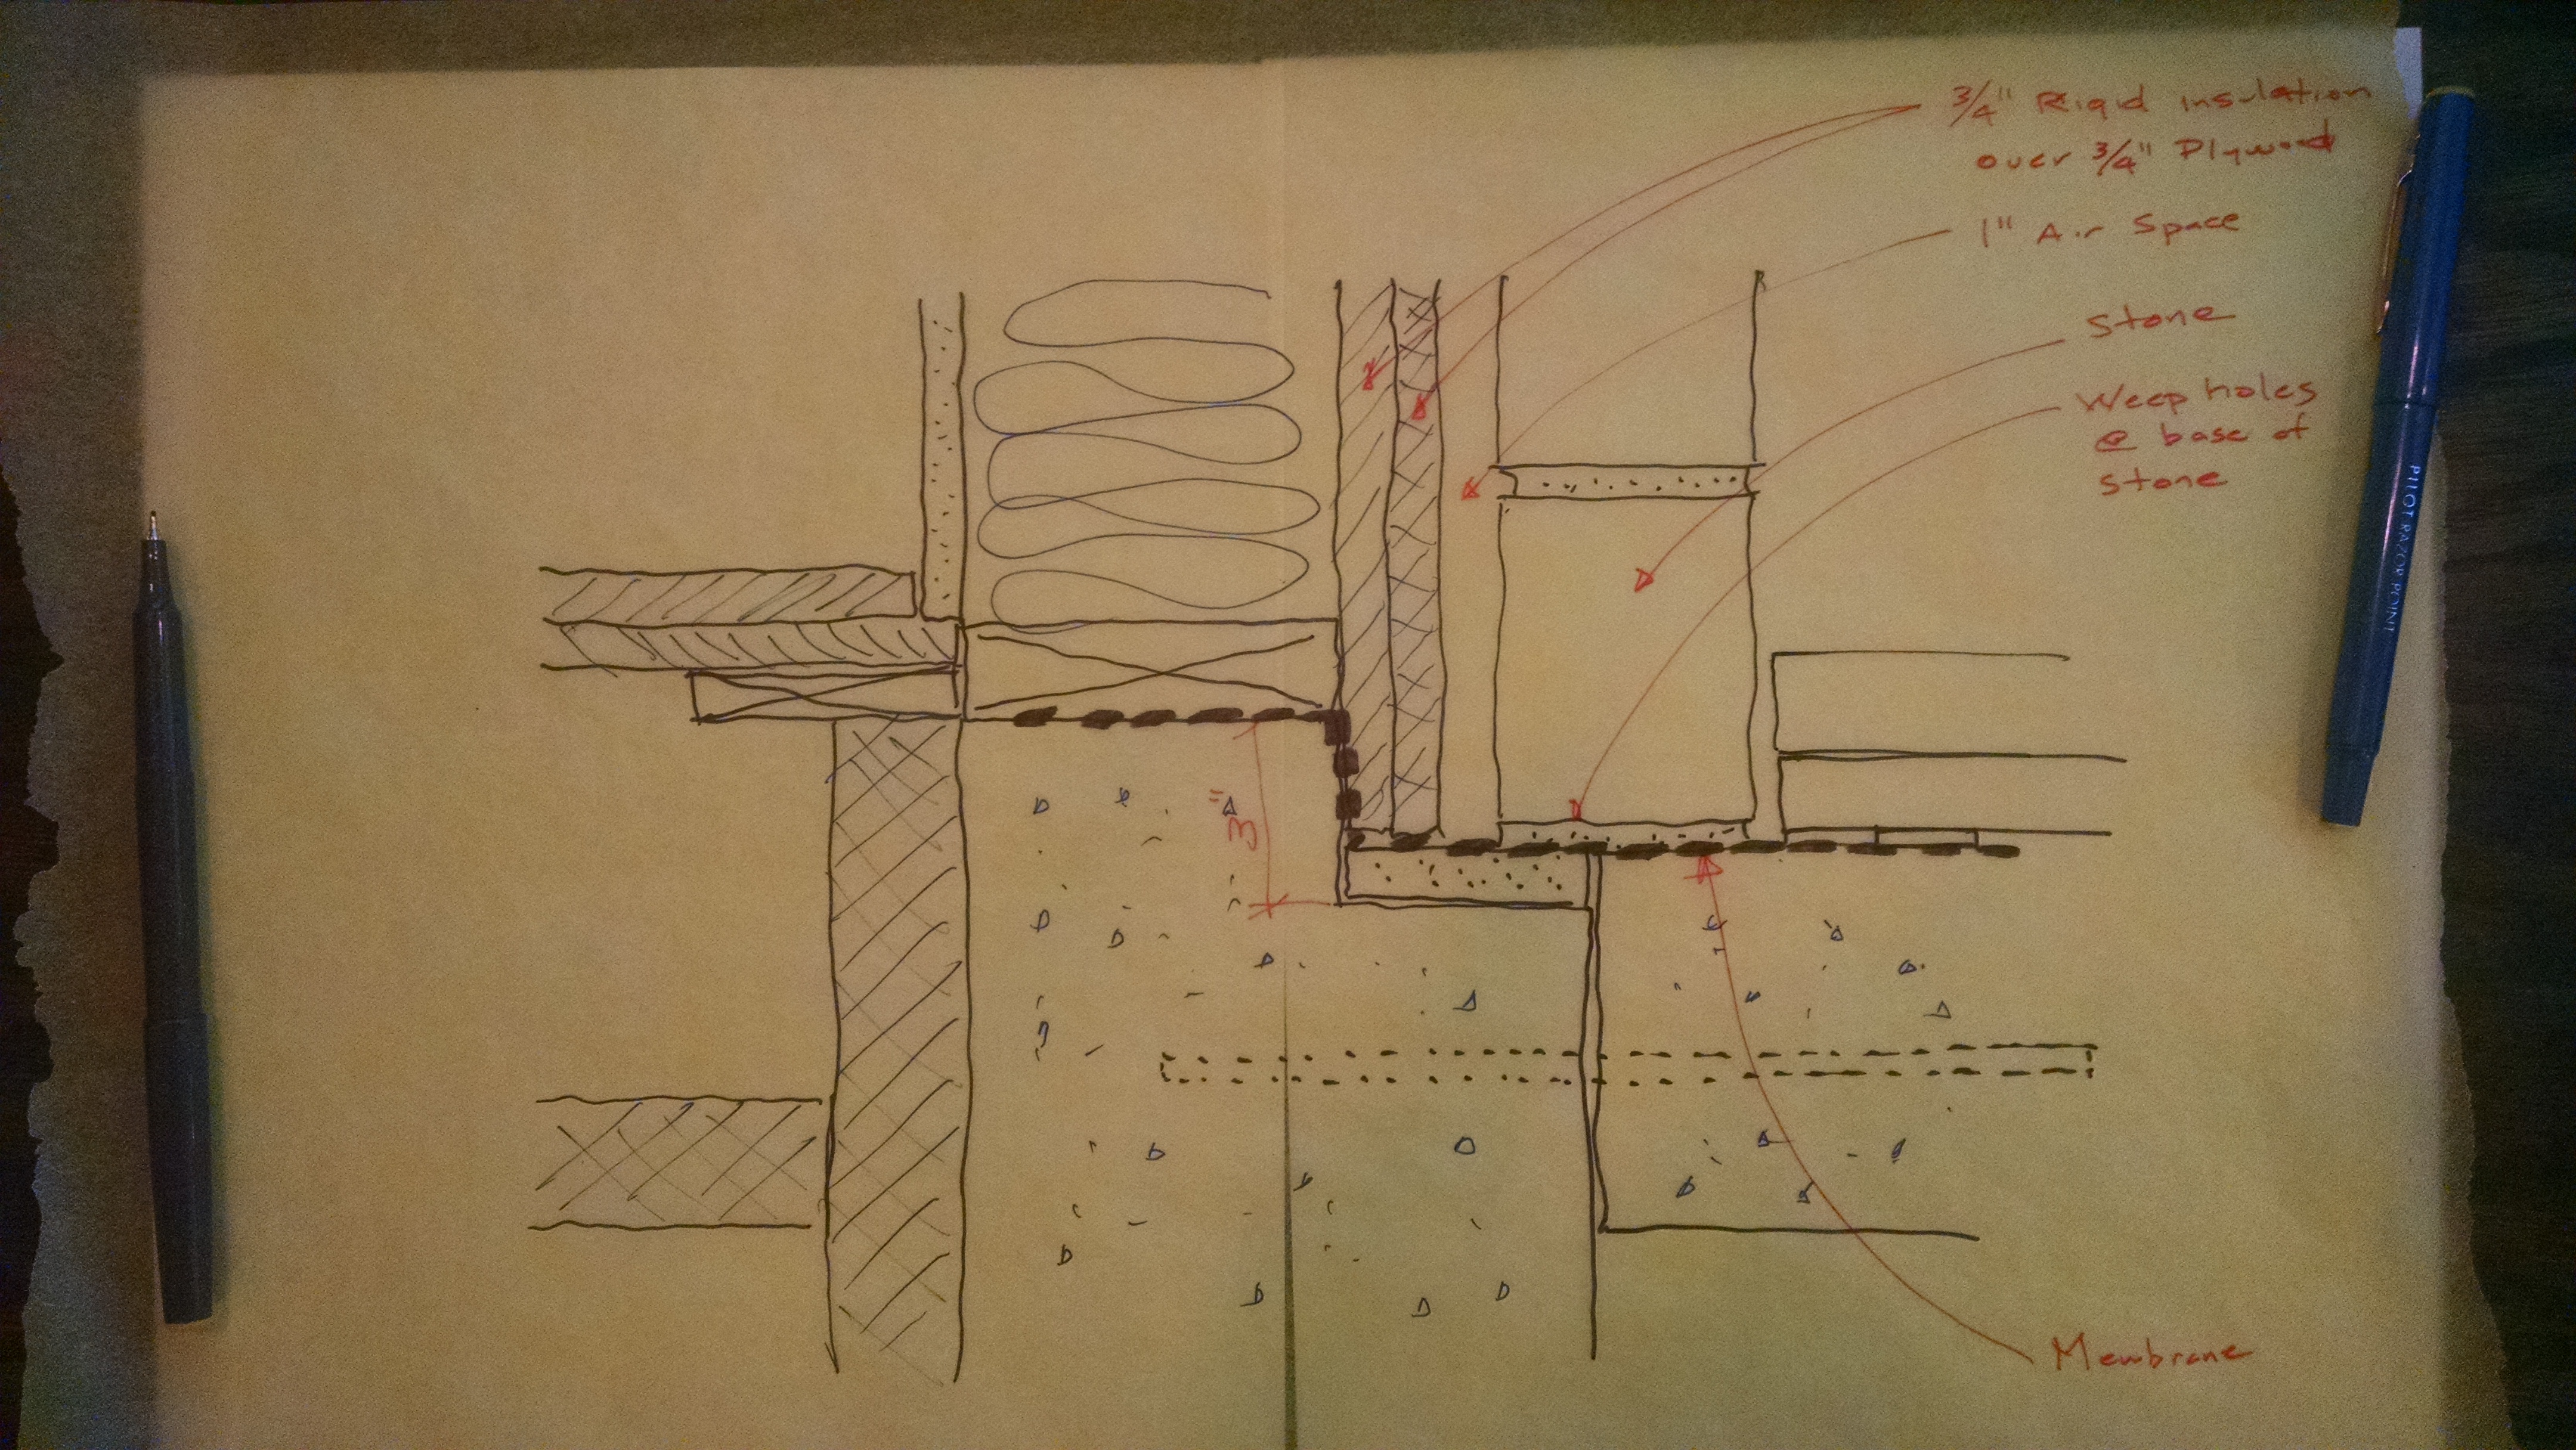 3/4" Rigid insulation
over 3/4" Plywood
1" Air Space
Stone
Weep holes
@ base of
stone
3"
Membrane
PILOT RAZOR POINT